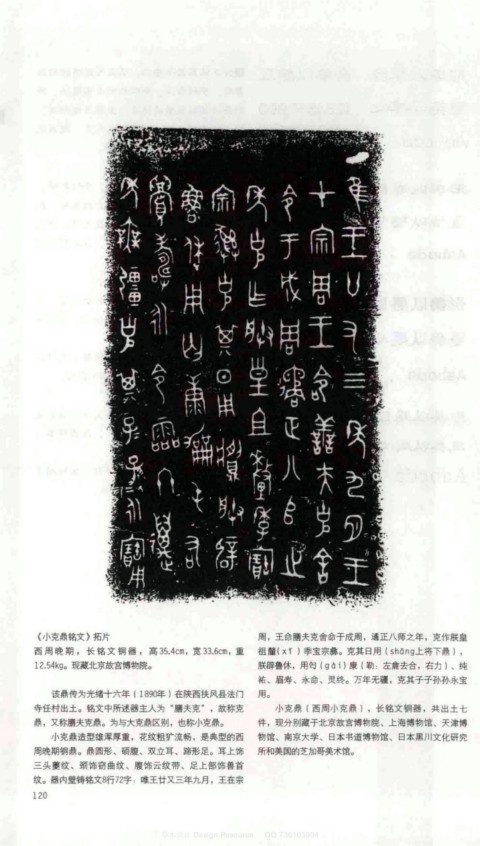 隹王廿又三年九月王
才宗周王命善夫克舍
令于成周遹正八𠂤之
年克乍朕皇且釐季寶
宗彝克其日用朕辟
魯休用匄康屯右
眉壽永令霝冬萬
年無疆克其子子孫孫永寶用
《小克鼎铭文》拓片
西周晚期，长铭文铜器，高35.4cm，宽33.6cm，重
12.54kg。现藏北京故宫博物院。
该鼎传为光绪十六年（1890年）在陕西扶风县法门
寺任村出土。铭文中所述器主人为“膳夫克”，故称克
鼎，又称膳夫克鼎。为与大克鼎区别，也称小克鼎。
小克鼎造型雄浑厚重，花纹粗犷流畅，是典型的西
周晚期铜鼎。鼎圆形、硕腹、双立耳、蹄形足。耳上饰
三头夔纹、颈饰窃曲纹、腹饰云纹带、足上部饰兽首
纹。器内壁铸铭文8行72字：唯王廿又三年九月，王在宗
周，王命膳夫克舍命于成周，遹正八师之年，克作朕皇
祖釐(xī)季宝宗彝。克其日用(shāng上将下鼎)，
朕辟鲁休，用匄(gài)康(勒：左龠去合，右力)、纯
祐、眉寿、永命、灵终。万年无疆，克其子子孙孙永宝
用。
小克鼎（西周小克鼎），长铭文铜器，共出土七
件，现分别藏于北京故宫博物院、上海博物馆、天津博
物馆、南京大学、日本书道博物馆、日本黑川文化研究
所和美国的芝加哥美术馆。
120